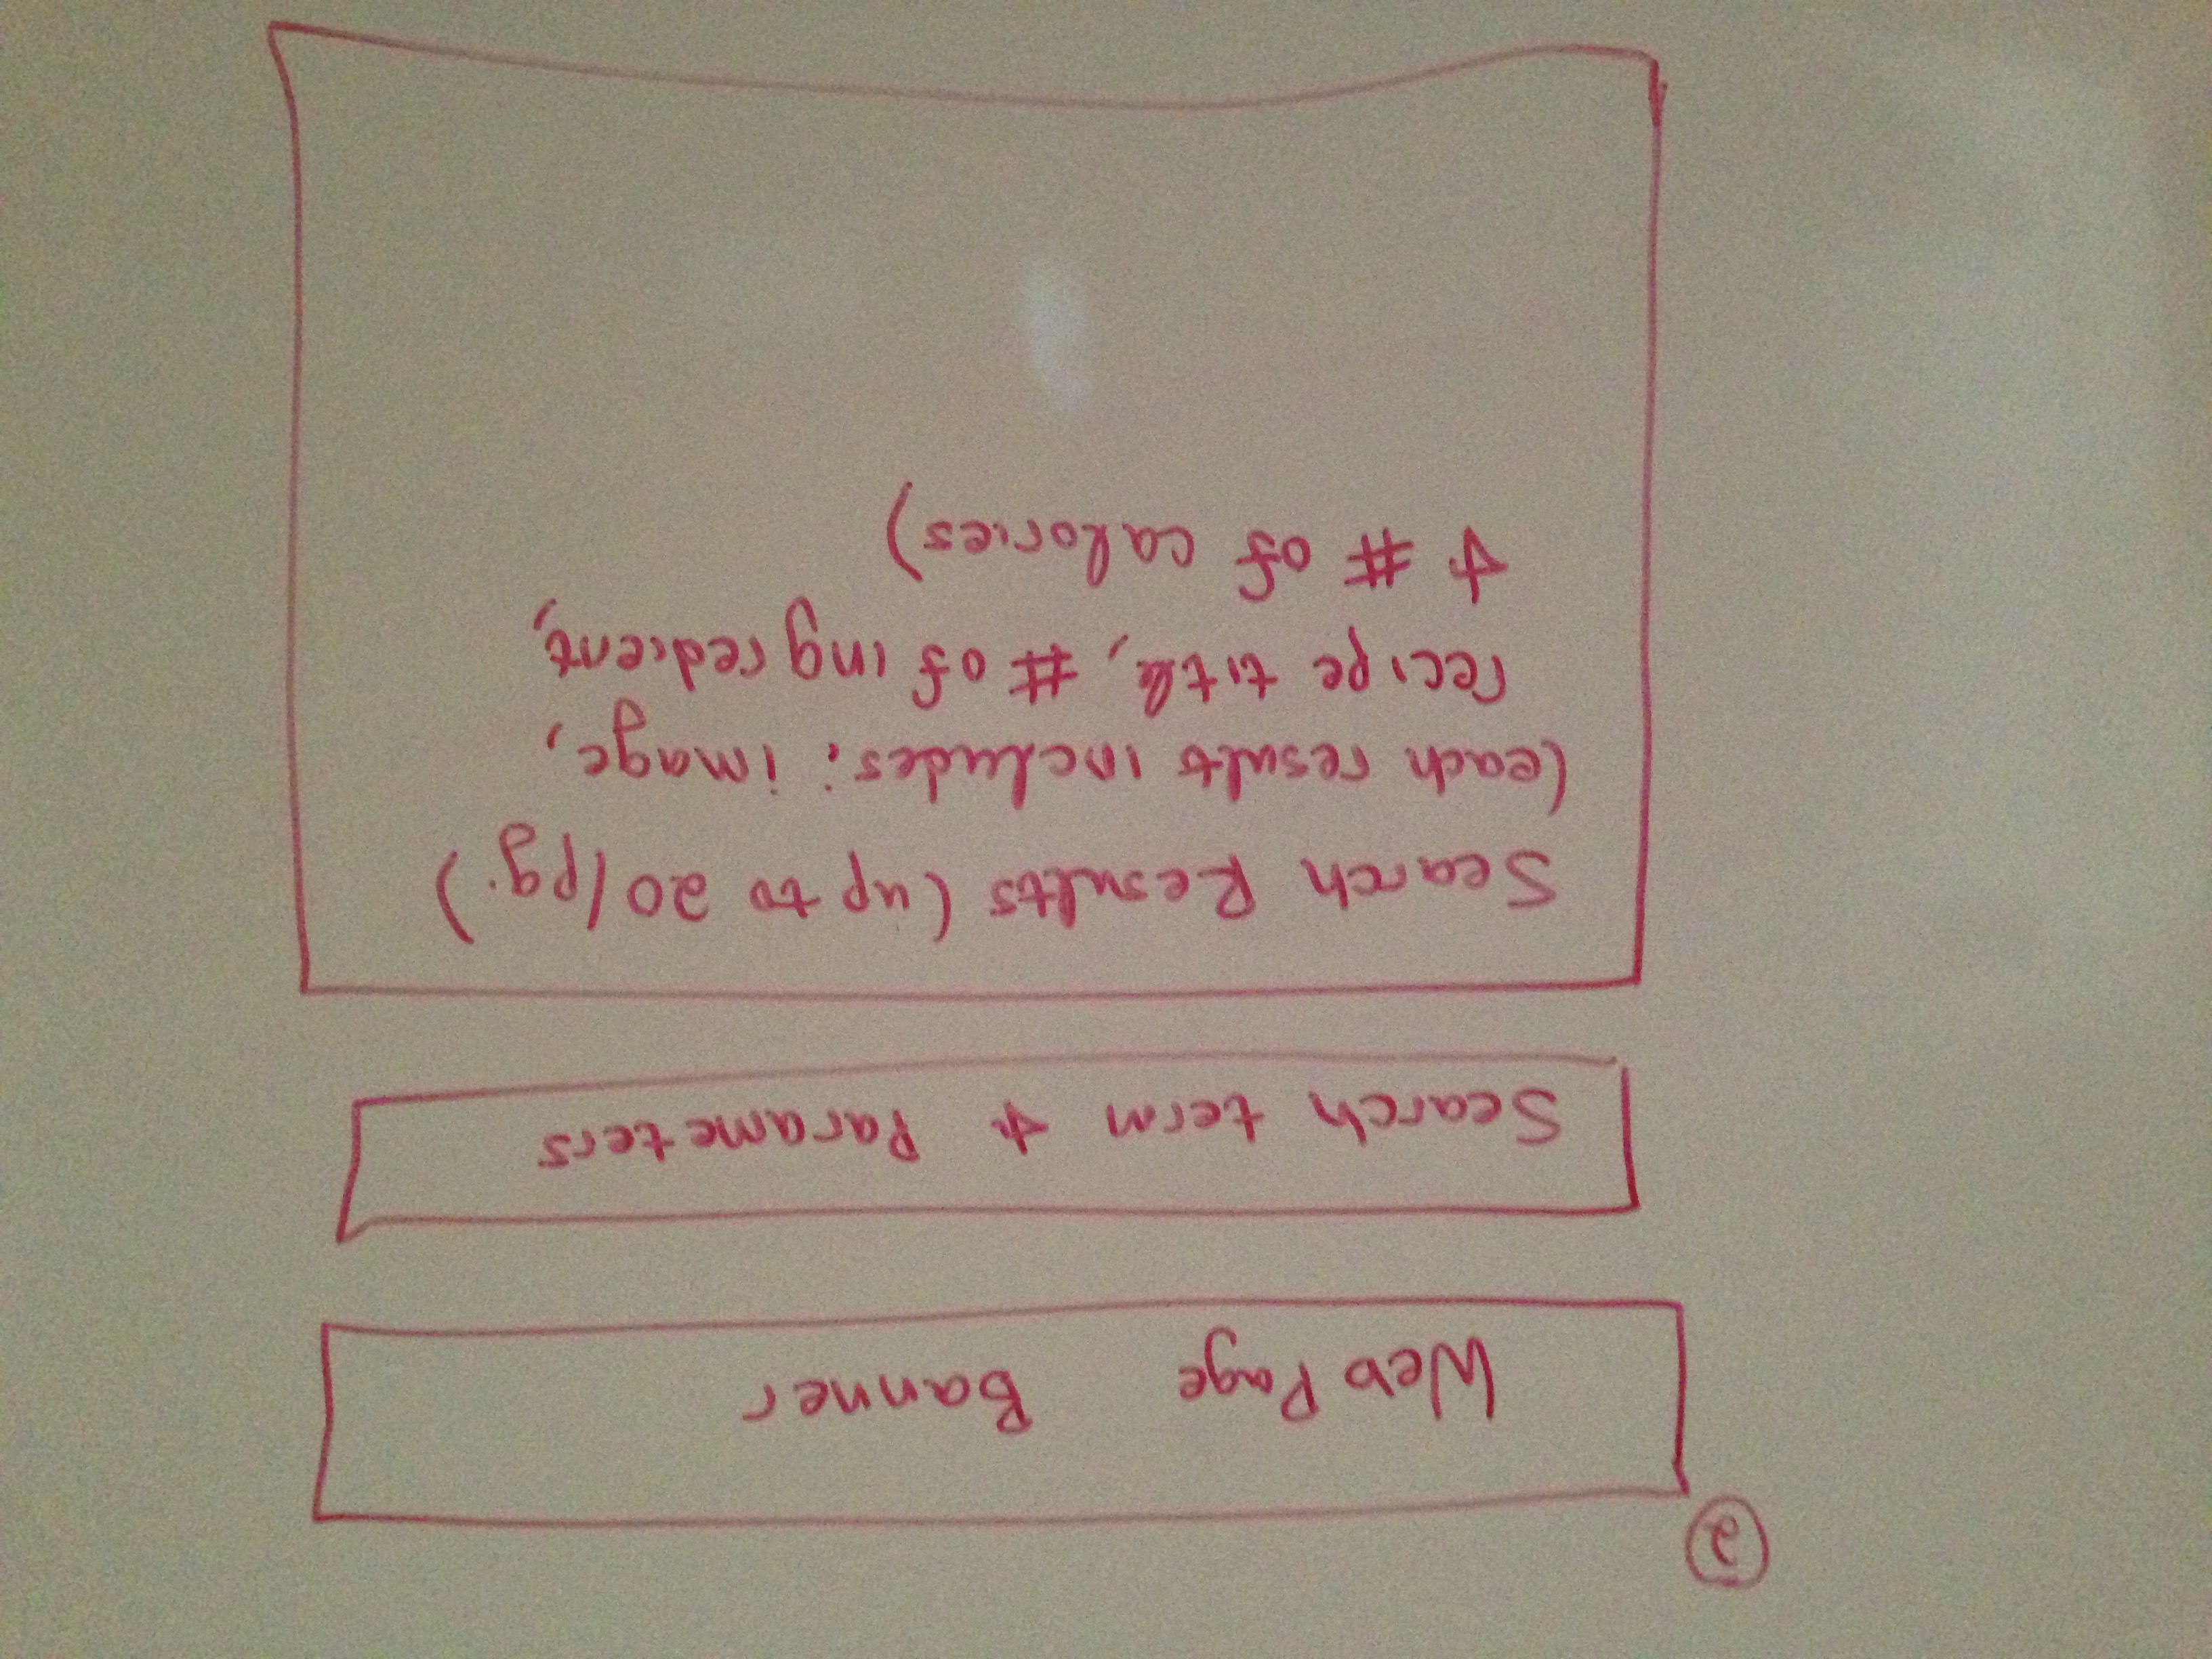 2
Web Page Banner
Search term & Parameters
Search Results (up to 20/pg.)
(each result includes: image,
recipe title, # of ingredient,
& # of calories)